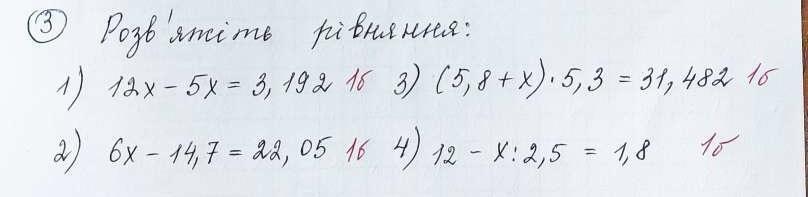 ③ Розв'яжіть рівняння:
1) 12x - 5x = 3,192 1б 3) (5,8 + x) · 5,3 = 31,482 1б
2) 6x - 14,7 = 22,05 1б 4) 12 - x : 2,5 = 1,8 1б